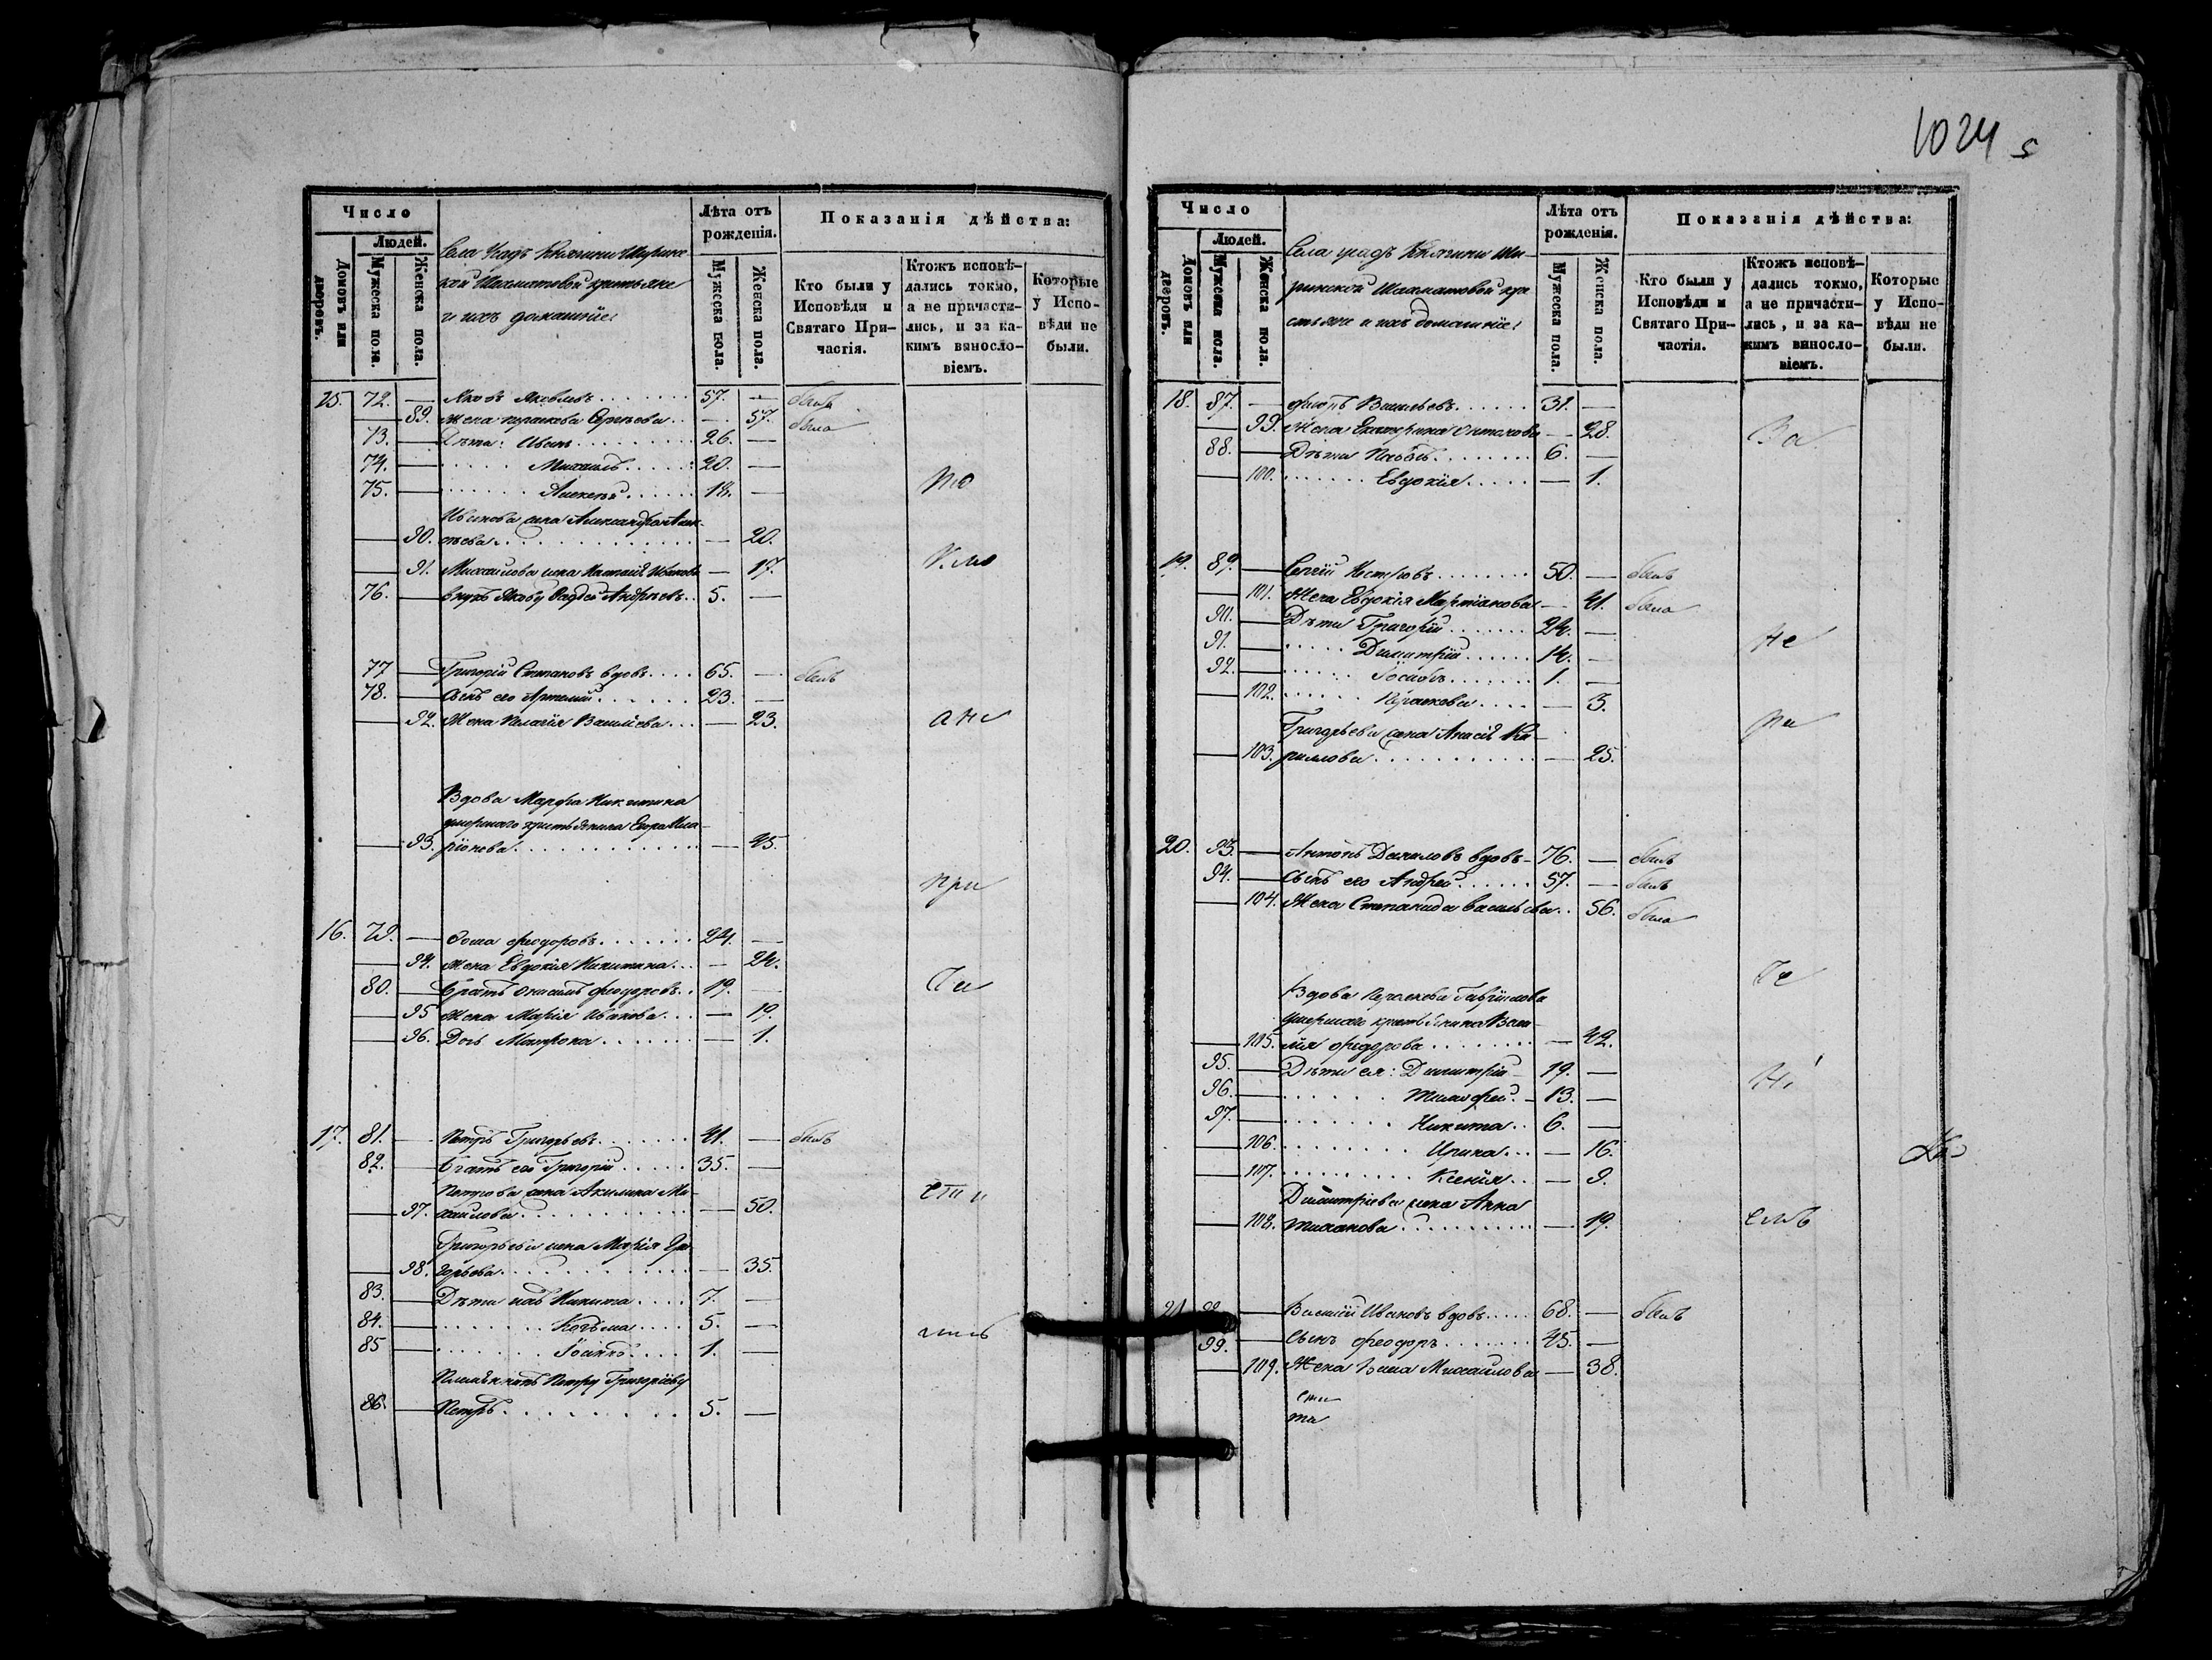 1024
Число
Людей.
Домовъ или дворовъ.
Мужеска пола.
Женска пола.
Села Княгини
и ихъ домашніе
Лѣта отъ рожденія.
Мужеска пола.
Женска пола.
Показанія дѣйства:
Кто были у Исповѣди и Святаго Причастія.
Ктожъ исповѣдались токмо, а не причастились, и за какимъ винословіемъ.
Которые у Исповѣди не были.
72. — Яковъ Яковлевъ 57. — былъ
— 89. Жена 57. была
73. — Дѣти: Иванъ 26. —
74. — Михаилъ 20. —
75. — Алексѣй 18. — то
Иванова жена Александра
— 90. — 20.
— 91. Михайлова жена Иванова — 17.
76. — Внукъ Якову Андреевъ 5. —
77 — Григорій Степановъ вдовъ 65. — былъ
78. — Сынъ его Артемій 23. —
— 92. Жена Пелагія Васильева — 23. а не
Вдова Марфа Никитина
умершаго крестьянина
— 93. ріонова — 45.
при
16. 79. — Ѳома Феодоровъ 24. —
— 94. Жена Евдокія Никитина — 24.
80. — Братъ Онисимъ Феодоровъ 19. —
— 95 Жена Марія Иванова — 19.
— 96. Дочь Матрона — 1.
17. 81. — Петръ Григорьевъ 41. — былъ
82. — Братъ его Григорій 35. —
Петрова жена Акилина Ми-
— 97. хаилова — 50.
Григорьева жена Марія Гри-
— 98. горьева — 35.
83. — Дѣти ихъ Никита 7. —
84. — Козьма 5. —
85 — Іоаннъ 1. —
Племянникъ Петру Григорьеву
86. — Петръ 5. —
Число
Людей.
Домовъ или дворовъ.
Мужеска пола.
Женска пола.
Села Княгини Ши-
ринской Шахматовой кре-
стьяне и ихъ домашніе
Лѣта отъ рожденія.
Мужеска пола.
Женска пола.
Показанія дѣйства:
Кто были у Исповѣди и Святаго Причастія.
Ктожъ исповѣдались токмо, а не причастились, и за какимъ винословіемъ.
Которые у Исповѣди не были.
18. 87. — Васильевъ 31. —
— 99. Жена Екатерина — 28. За
88. — Дѣти Павелъ 6. —
— 100. Евдокія — 1.
19. 89. — Сергій Нестеровъ 50. — былъ
— 101. Жена Евдокія Мартіанова — 41. была
90. — Дѣти Григорій 24. —
91. — Димитрій 14. — не
92. — Іосифъ 1. —
— 102. Параскева — 3.
Григорьева жена Ки-
— 103. риллова — 25.
20. 93. — Антонъ Даниловъ вдовъ 76. — былъ
94. — Сынъ его Андрей 57. — былъ
— 104. Жена Степанида Васильева 56. была
Вдова Параскева Гаврилова
умершаго крестьянина Васи-
— 105. лія Федорова — 42.
95. — Дѣти ея: Димитрій 19. —
96. — Тимофей 13. —
97. — Никита 6. —
— 106. Ирина — 16.
— 107. Ксенія — 9.
Димитріева жена Анна
— 108. — 19.
21 98 — Василій Ивановъ вдовъ 68. — былъ
99. — Сынъ Феодоръ 45. —
— 109. Жена Михаилова — 38.